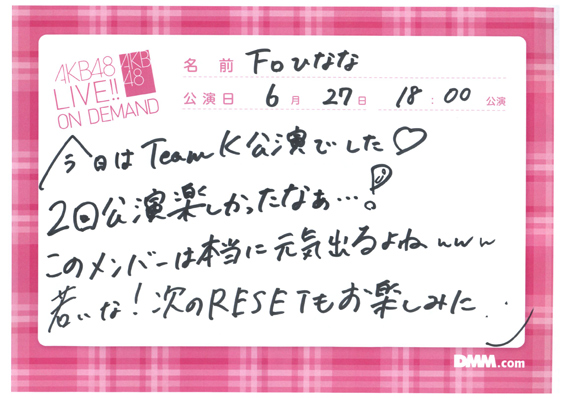 AKB48
LIVE!!
ON DEMAND
AKB
48
名前 Foひなな
公演日 6月27日 18:00 公演
今日はTeam K公演でした♡
2回公演楽しかったなぁ…!
このメンバーは本当に元気出るよねwww
若いな!次のRESETもお楽しみに
DMM.com